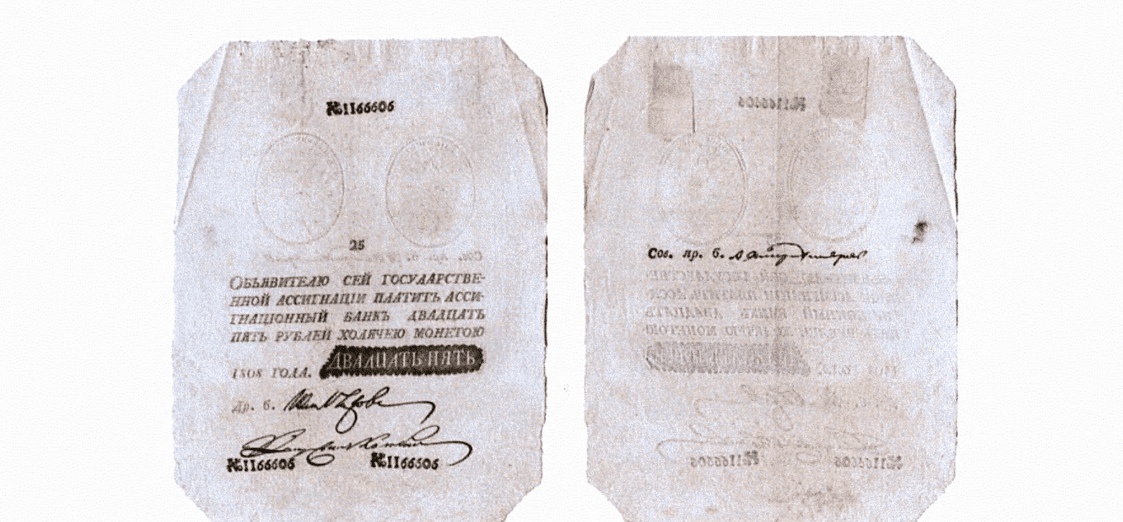 №1166606
25
ОБЬЯВИТЕЛЮ СЕЙ ГОСУДАРСТВЕ-
ННОЙ АССИГНАЦІИ ПЛАТИТЪ АССИ-
ГНАЦІОННЫЙ БАНКЪ ДВАДЦАТЬ
ПЯТЬ РУБЛЕЙ ХОДЯЧЕЮ МОНЕТОЮ
1808 ГОДА. ДВАДЦАТЬ ПЯТЬ
Др. б.
№1166606 №1166606
Сов. пр. б.